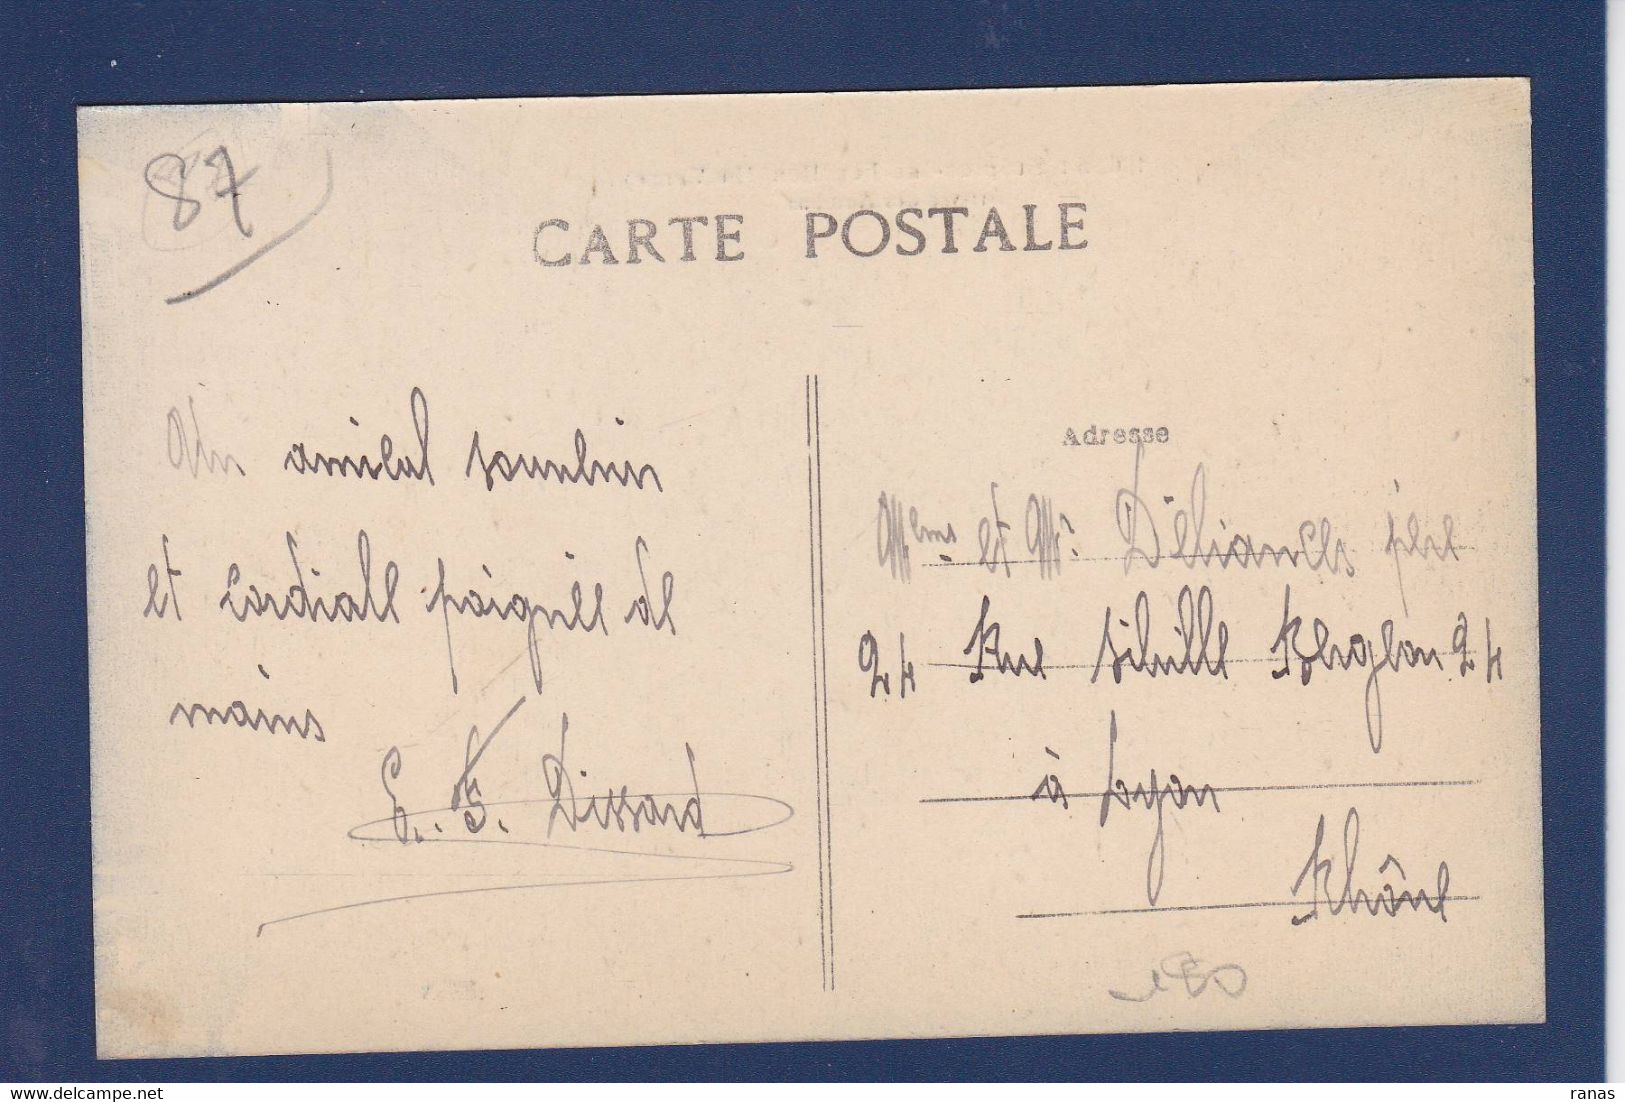 87
CARTE POSTALE
Un amical souvenir
et cordiale poignée de
mains
E. F. Dissard
Adresse
Mme et Mr. Deliance père
24 Rue Vieille 24
à Lyon
Rhône
180
ranas
delcampe.net